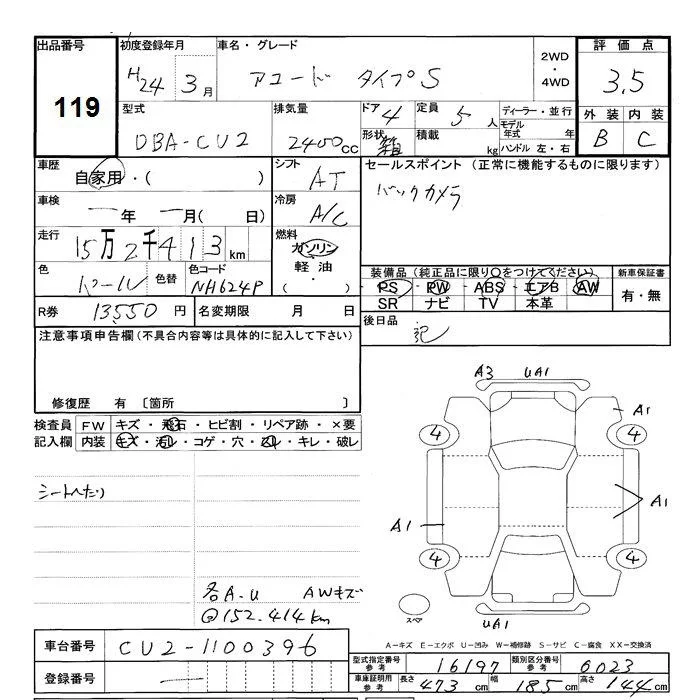 出品番号 初度登録年月 車名・グレード 評価点
119
H24年3月 アコード タイプS 2WD・4WD 3.5
型式 排気量 ドア 4 定員 5人 ディーラー・並行 外装 内装
DBA-CU2 2400cc 形状 箱 積載 kg モデル年式 年 B C
ハンドル 左・右
車歴 自家用・( ) シフト AT セールスポイント (正常に機能するものに限ります)
バックカメラ
車検 ー年 ー月( 日) 冷房 A/C
走行 15万2千413km 燃料 ガソリン・軽油・( )
色 パール 色替 色コード NH624P
装備品(純正品に限り○をつけてください) 新車保証書
PS PW ABS エアB AW 有・無
SR ナビ TV 本革
R券 13550円 名変期限 月 日
後日品 記
注意事項申告欄(不具合内容等は具体的に記入して下さい)
修復歴 有 〔箇所 〕
検査員記入欄 FW キズ・飛石・ヒビ割・リペア跡・×要
内装 キズ・汚れ・コゲ・穴・・キレ・破レ
シートへたり
各A.U AWキズ
@152.414km
A3 UA1
4 4 A1
A1 A1
4 4
スペア UA1
A-キズ E-エクボ U-凹み W-補修跡 S-サビ C-腐食 XX-交換済
車台番号 CU2-1100396
登録番号 ー
型式指定番号参考 16197 類別区分番号参考 6023
車庫証明用参考 長さ 473cm 幅 185cm 高さ 144cm